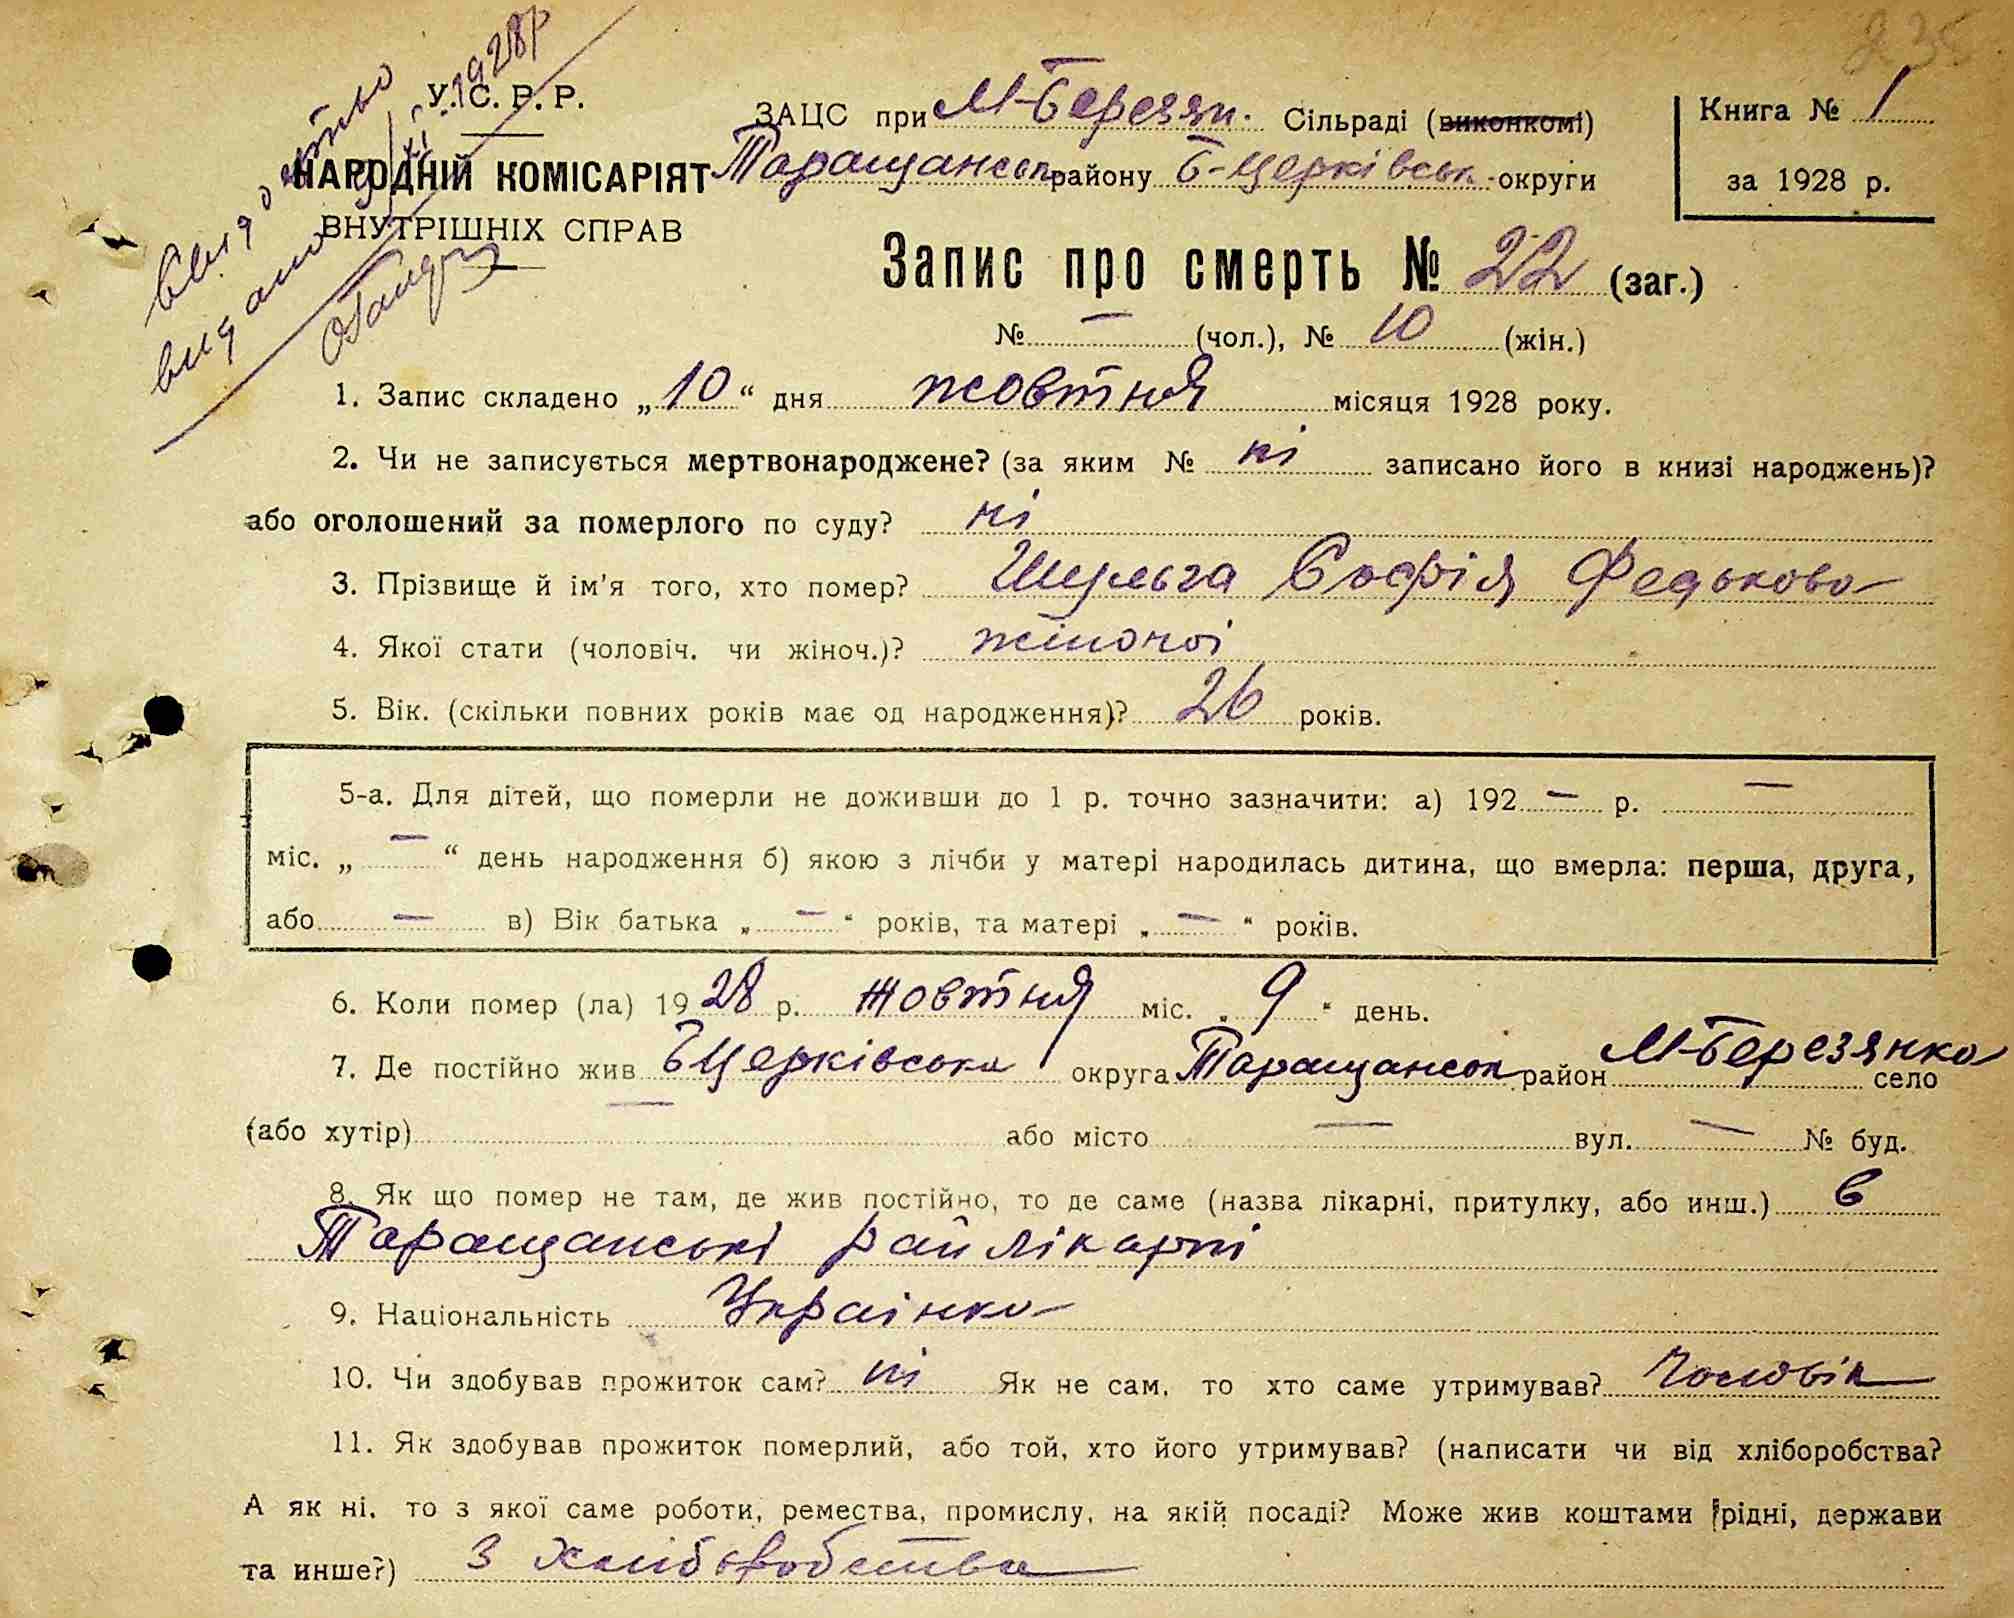 235
Свідоцтво
видано 1928р
У. С. Р. Р.
НАРОДНІЙ КОМІСАРІЯТ
ВНУТРІШНІХ СПРАВ
ЗАЦС при М-Березян. Сільраді (виконкомі)
Таращанськ району Б-Церківськ. округи
Книга № 1
за 1928 р.
Запис про смерть № 22 (заг.)
№ — (чол.), № 10 (жін.)
1. Запис складено „10“ дня жовтня місяця 1928 року.
2. Чи не записується мертвонароджене? (за яким № ні записано його в книзі народжень)?
або оголошений за померлого по суду? ні
3. Прізвище й ім'я того, хто помер? Шульга Софія Федькова
4. Якої стати (чоловіч. чи жіноч.)? жіночоі
5. Вік. (скільки повних років має од народження)? 26 років.
5-а. Для дітей, що померли не доживши до 1 р. точно зазначити: а) 192 — р. —
міс. „ — “ день народження б) якою з лічби у матері народилась дитина, що вмерла: перша, друга,
або — в) Вік батька „ — “ років, та матері „ — “ років.
6. Коли помер (ла) 1928 р. жовтня міс. „ 9 “ день.
7. Де постійно жив БЦерківська округа Таращанськ район М-Березянка село
(або хутір) — або місто — вул. — № буд.
8. Як що помер не там, де жив постійно, то де саме (назва лікарні, притулку, або инш.) в
Таращанські райлікарні
9. Національність Украінка
10. Чи здобував прожиток сам? ні Як не сам, то хто саме утримував? Чоловік
11. Як здобував прожиток померлий, або той, хто його утримував? (написати чи від хліборобства?
А як ні, то з якої саме роботи, ремества, промислу, на якій посаді? Може жив коштами рідні, держави
та инше?) З хліборобства